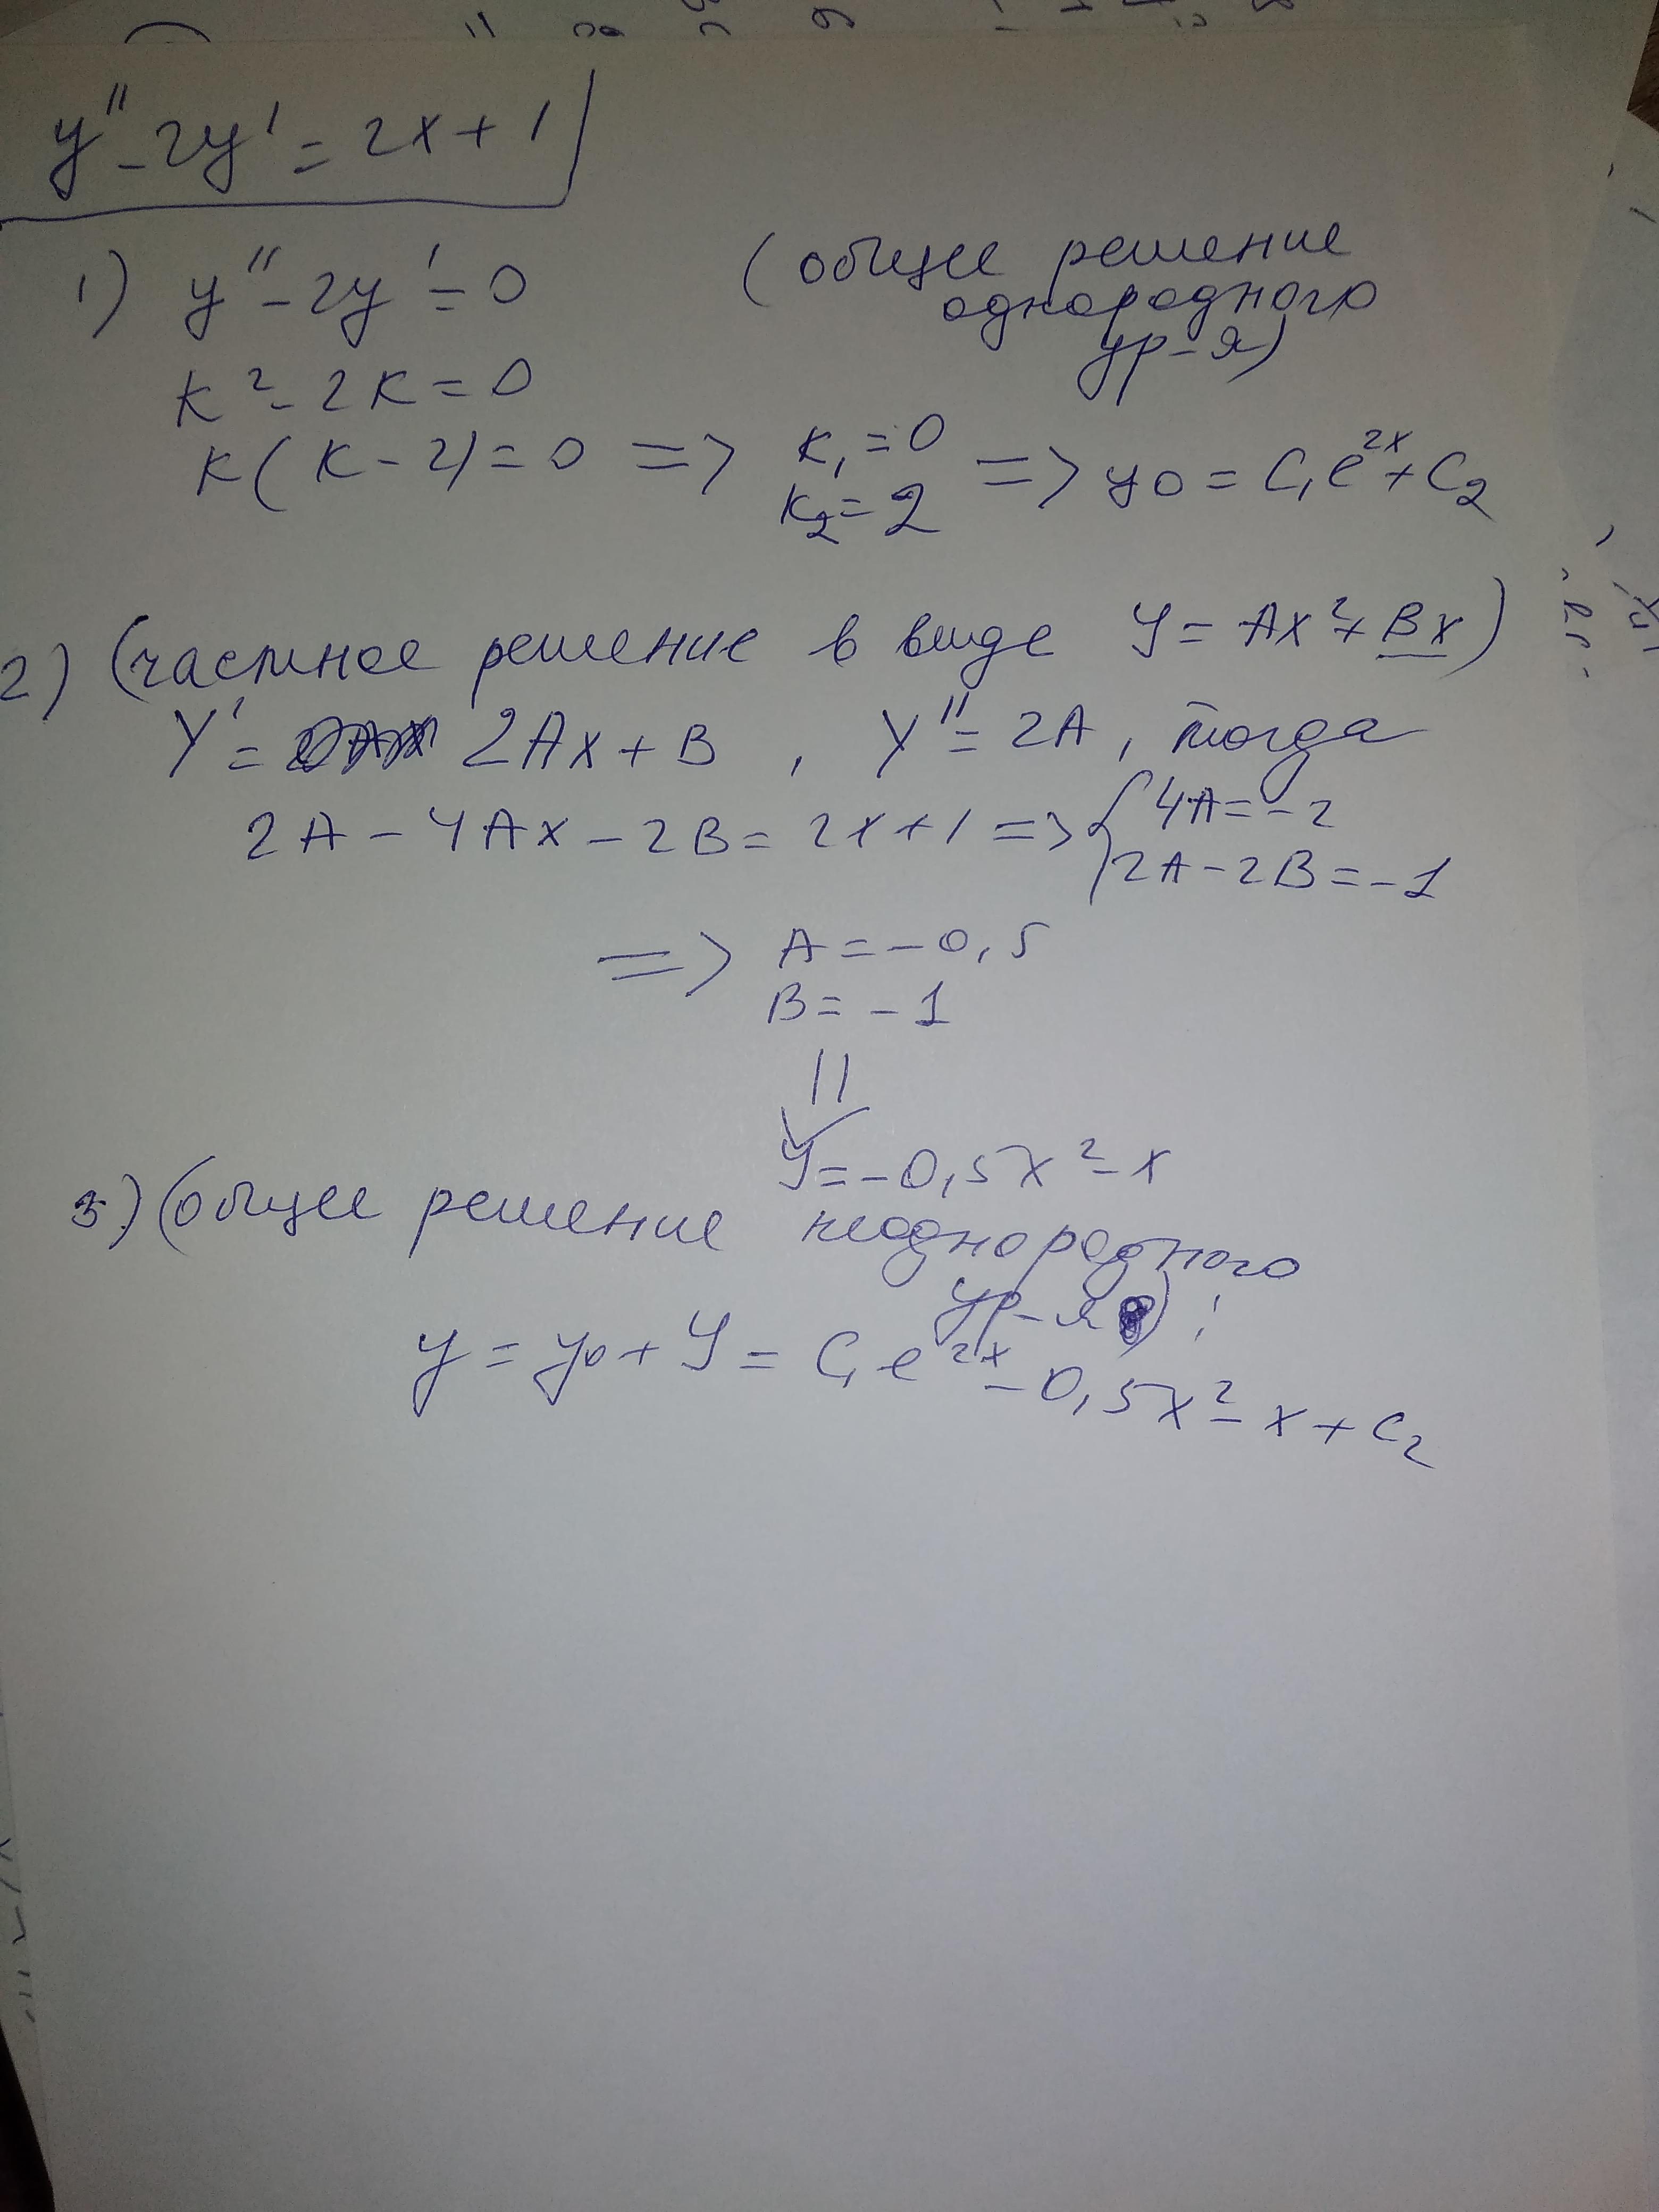 y'' - 2y' = 2x + 1
1) y'' - 2y' = 0 (общее решение
однородного
ур-я)
k² - 2k = 0
k(k - 2) = 0 => k₁ = 0 => y₀ = C₁e²ˣ + C₂
k₂ = 2
2) (частное решение в виде Y = Ax² + Bx)
Y' = 2Ax + B , Y'' = 2A , тогда
2A - 4Ax - 2B = 2x + 1 => { 4A = -2
2A - 2B = -1
=> A = -0,5
B = -1
Y = -0,5x² - x
3) (общее решение неоднородного
ур-я) :
y = y₀ + Y = C₁e²ˣ - 0,5x² - x + C₂